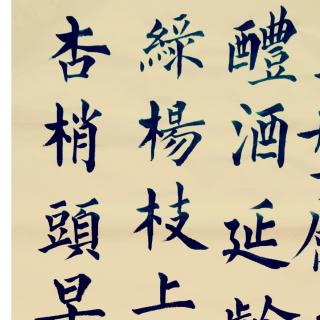 醴酒延齡
綵楊枝上
杏梢頭早